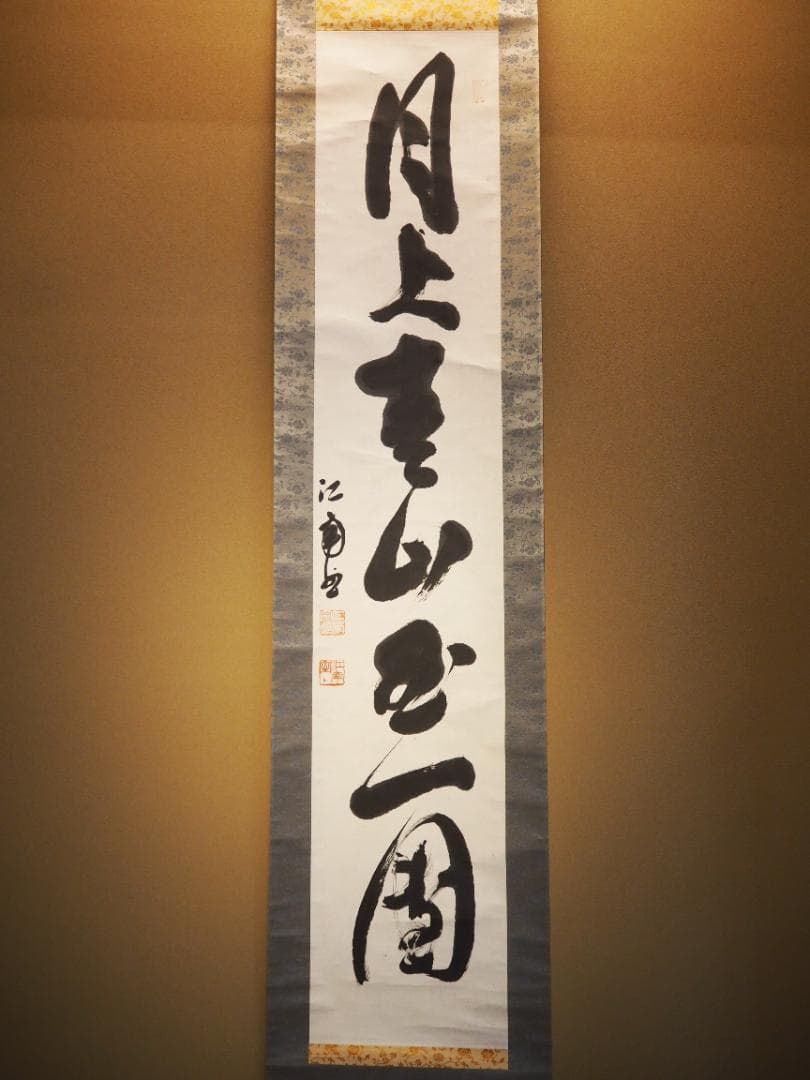 月上青山玉一團
江南書